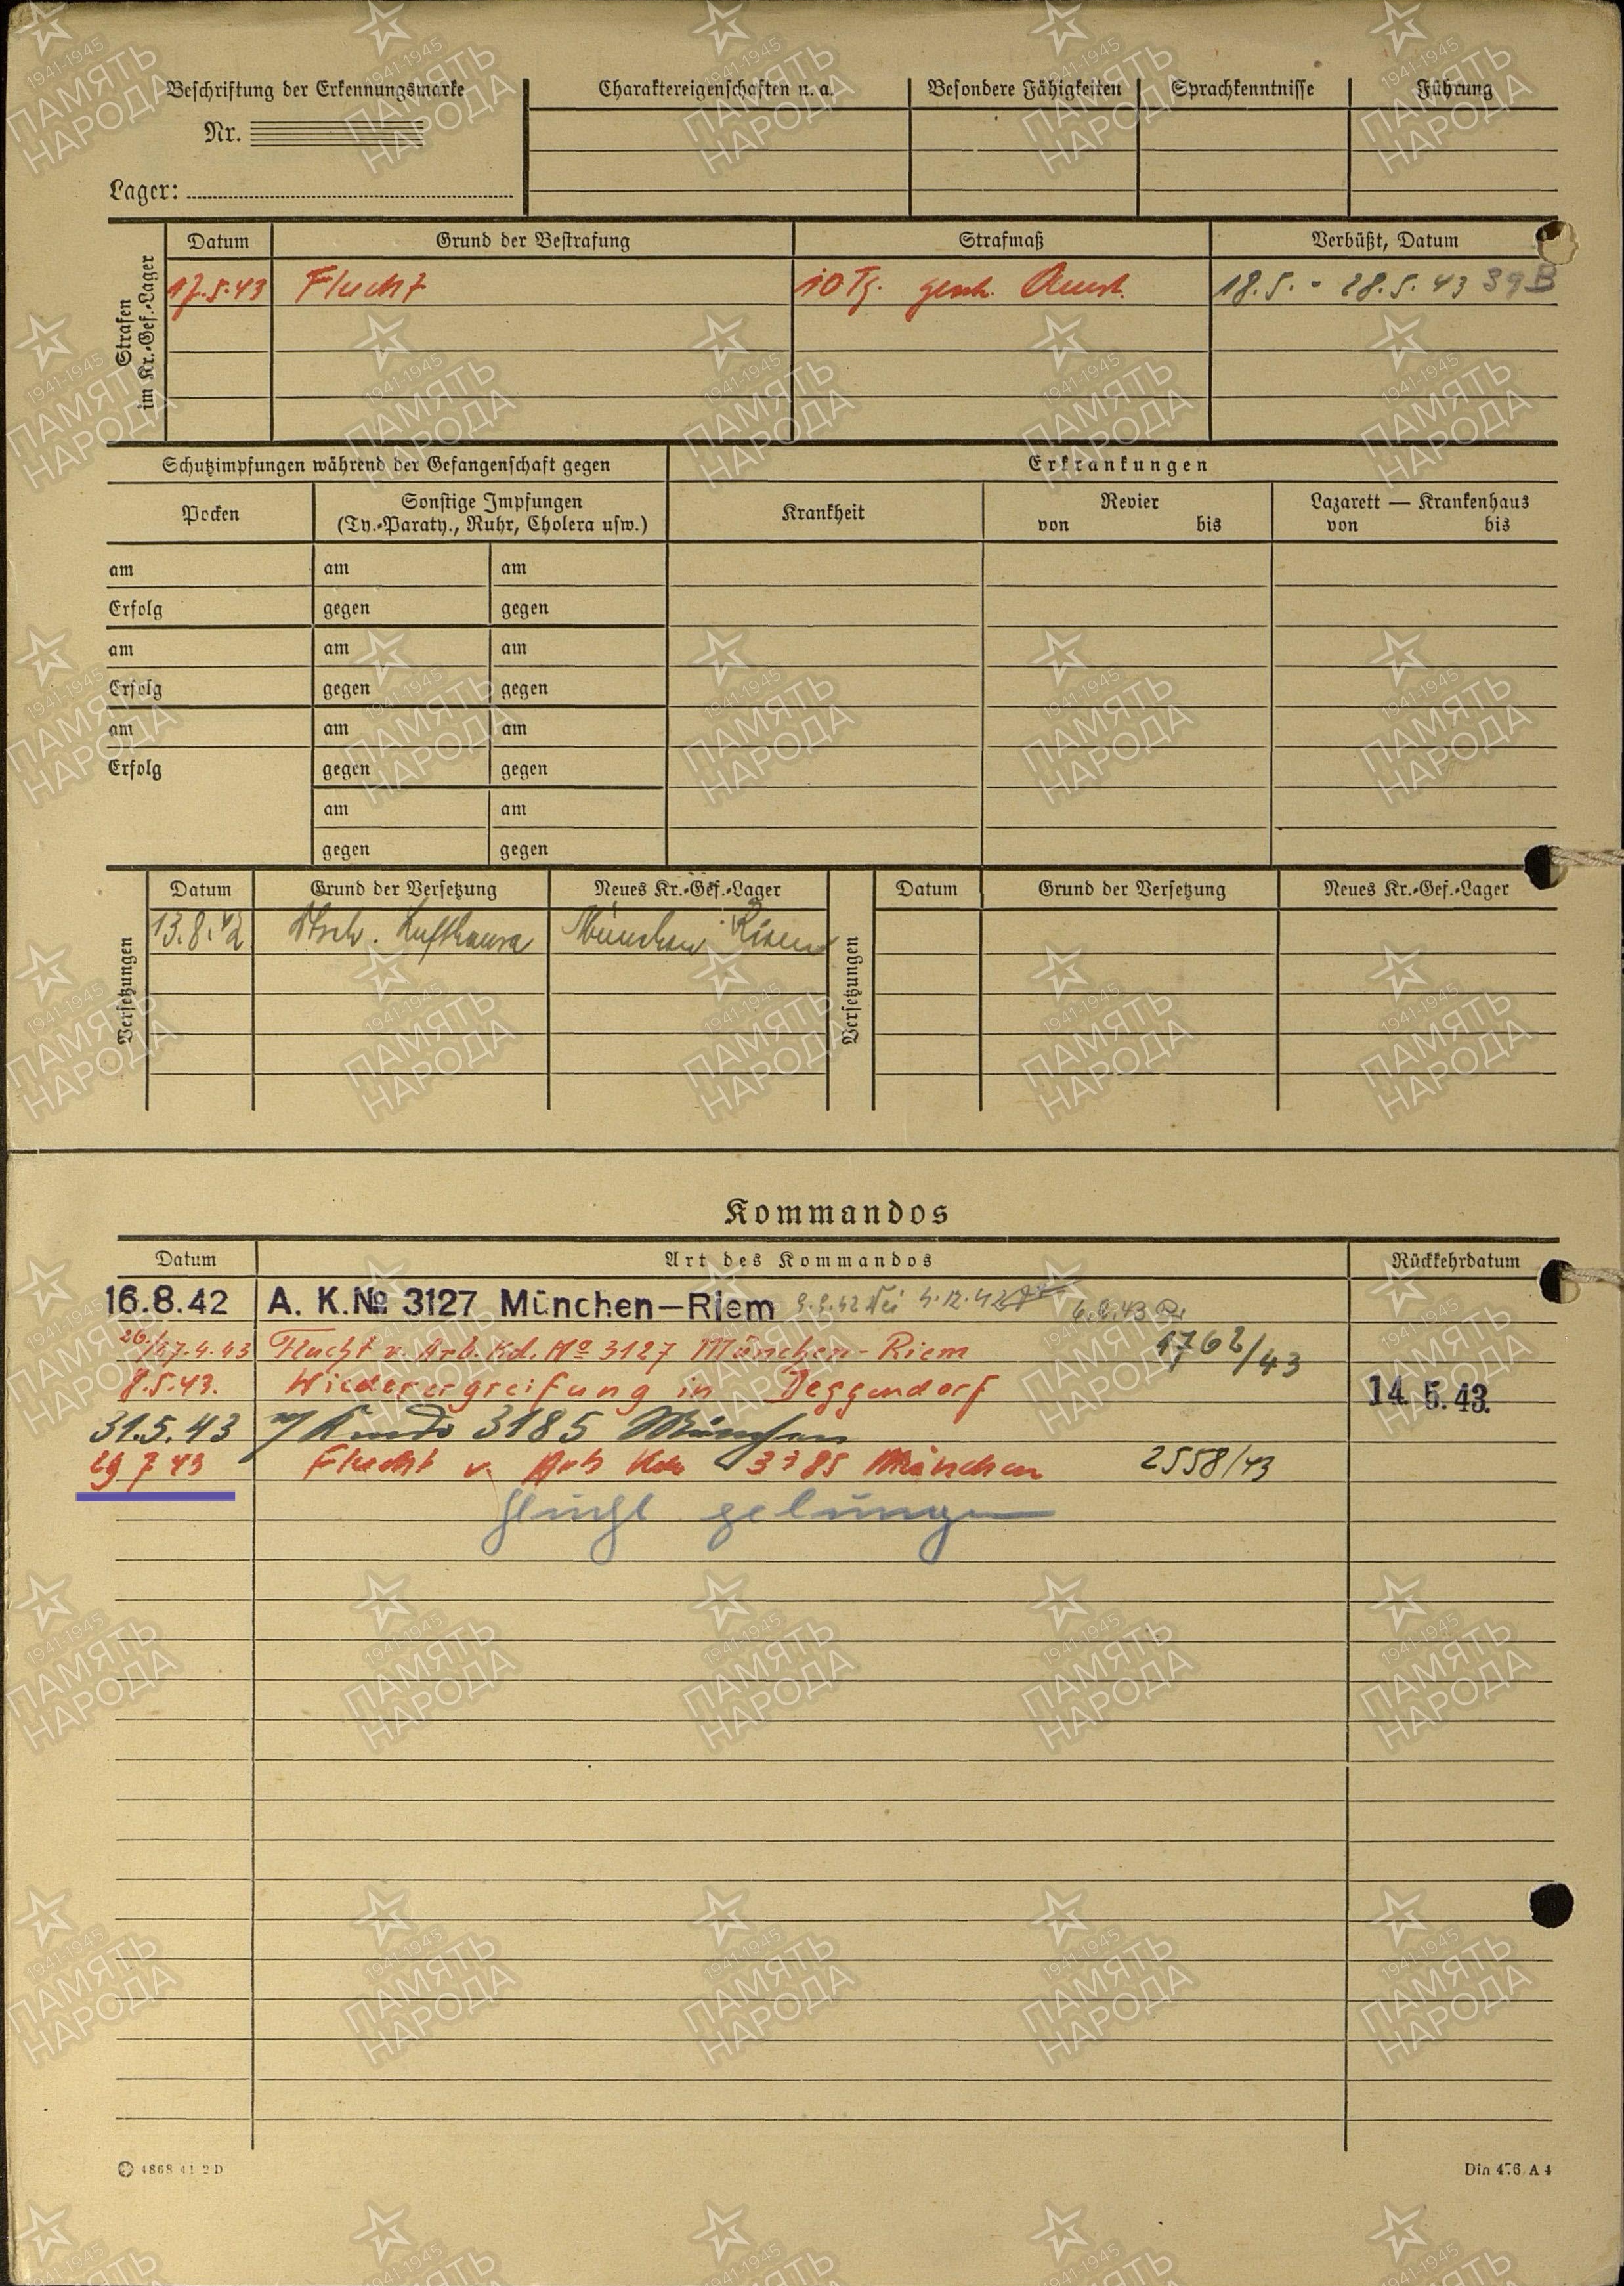 Beschriftung der Erkennungsmarke
Charaktereigenschaften u. a.
Besondere Fähigkeiten
Sprachkenntnisse
Führung
Nr.
Lager:
Strafen im Kr.-Gef.-Lager
Datum
Grund der Bestrafung
Strafmaß
Verbüßt, Datum
17.5.43 Flucht 10 Tg. gesch. Arrest. 18.5. - 28.5.43 39B
Schutzimpfungen während der Gefangenschaft gegen
Erkrankungen
Pocken
Sonstige Impfungen
(Ty.-Paraty., Ruhr, Cholera usw.)
Krankheit
Revier
von bis
Lazarett — Krankenhaus
von bis
am am am
Erfolg gegen gegen
am am am
Erfolg gegen gegen
am am am
Erfolg gegen gegen
am am
gegen gegen
Versetzungen
Datum
Grund der Versetzung
Neues Kr.-Gef.-Lager
Versetzungen
Datum
Grund der Versetzung
Neues Kr.-Gef.-Lager
13.8.42 Dtsch. Lufthansa München Riem
Kommandos
Datum
Art des Kommandos
Rückkehrdatum
16.8.42 A. K. № 3127 München—Riem 4.12.42
26./27.4.43 Flucht v. Arb. Kd. No 3127 München-Riem 1762/43
8.5.43. Wiederergreifung in Deggendorf 14. 5. 43.
31.5.43 Kmdo 3185 München
29 7 43 Flucht v. Arb Kdo 3185 München 2558/43
Flucht gelungen
4868 41 2 D
Din 476 A 4
1941-1945
ПАМЯТЬ
НАРОДА